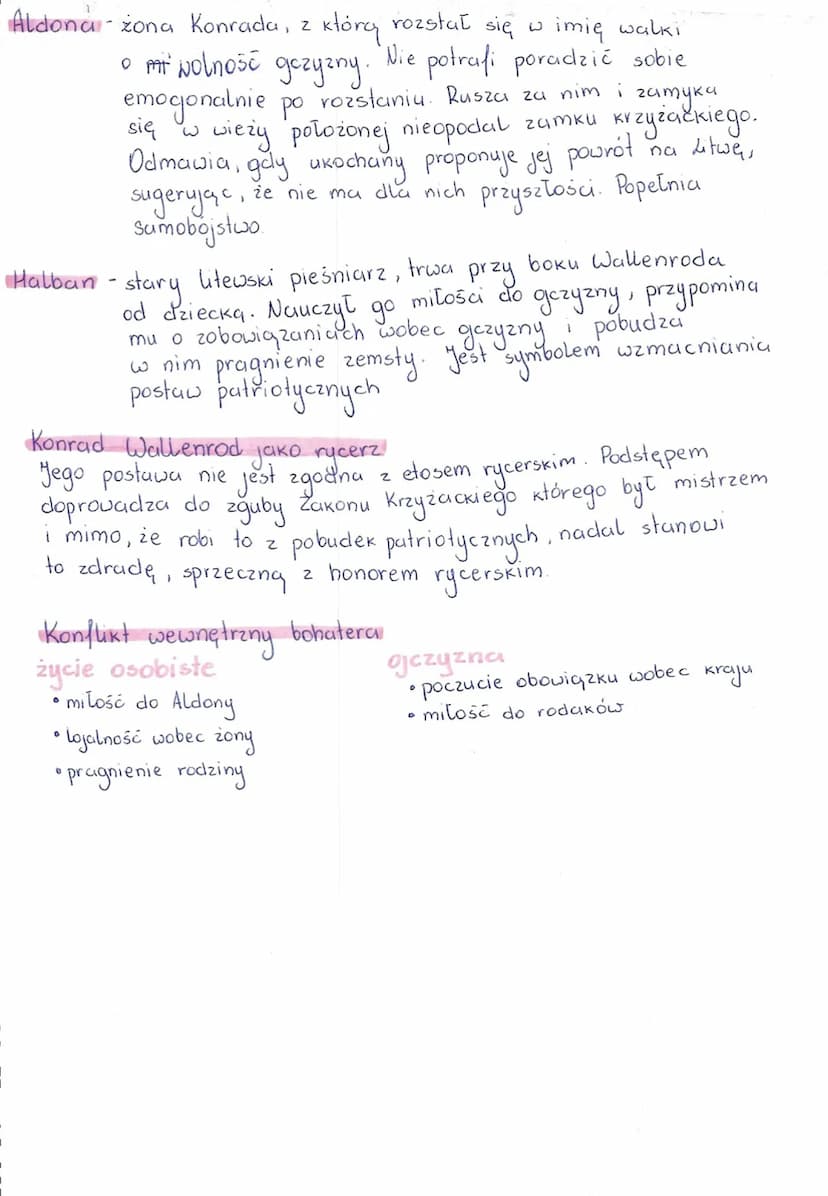 Aldona - żona Konrada, z którą rozstał się w imię walki
o wolność ojczyzny. Nie potrafi poradzić sobie
emocjonalnie po rozstaniu. Rusza za nim i zamyka
się w wieży położonej nieopodal zamku krzyżackiego.
Odmawia, gdy ukochany proponuje jej powrót na Litwę,
sugerując, że nie ma dla nich przyszłości. Popełnia
samobójstwo.
Halban - stary litewski pieśniarz, trwa przy boku Wallenroda
od dziecka. Nauczył go miłości do ojczyzny, przypomina
mu o zobowiązaniach wobec ojczyzny i pobudza
w nim pragnienie zemsty. Jest symbolem wzmacniania
postaw patriotycznych
Konrad Wallenrod jako rycerz
Jego postawa nie jest zgodna z etosem rycerskim. Podstępem
doprowadza do zguby Zakonu Krzyżackiego którego był mistrzem
i mimo, że robi to z pobudek patriotycznych, nadal stanowi
to zdradę, sprzeczną z honorem rycerskim.
Konflikt wewnętrzny bohatera
życie osobiste
• miłość do Aldony
• lojalność wobec żony
• pragnienie rodziny
ojczyzna
• poczucie obowiązku wobec kraju
• miłość do rodaków